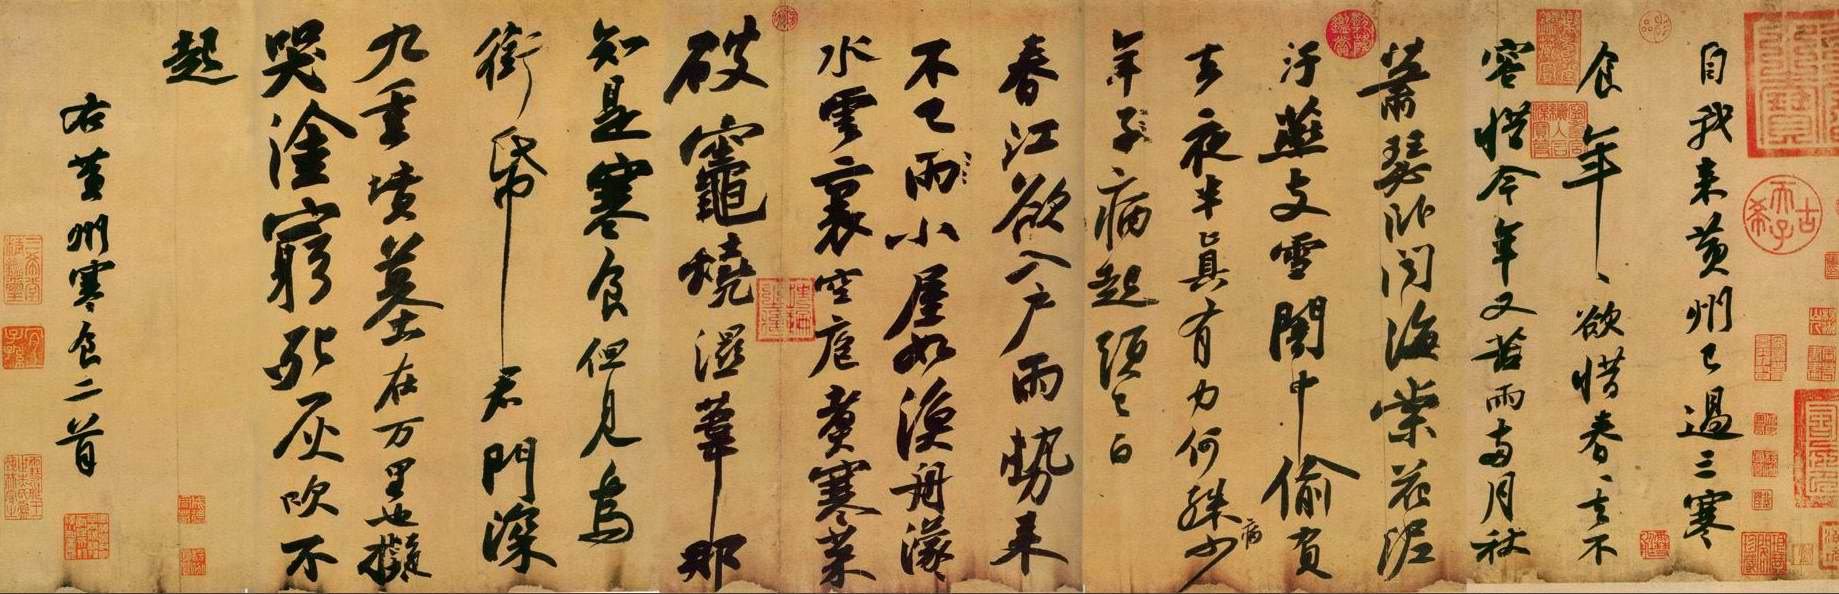 自我來黃州已過三寒
食年〻欲惜春〻去不
容惜今年又苦雨兩月秋
蕭瑟臥聞海棠花泥
汙燕支雪闇中偷負
去夜半真有力何殊少
病
年子病起須已白
春江欲入戶雨勢來
不已雨小屋如漁舟濛〻
水雲裏空庖煮寒菜
破竈燒濕葦那
知是寒食但見烏
銜帋君門深
九重墳墓在万里也擬
哭塗窮死灰吹不
起
右黃州寒食二首
古
希
天子